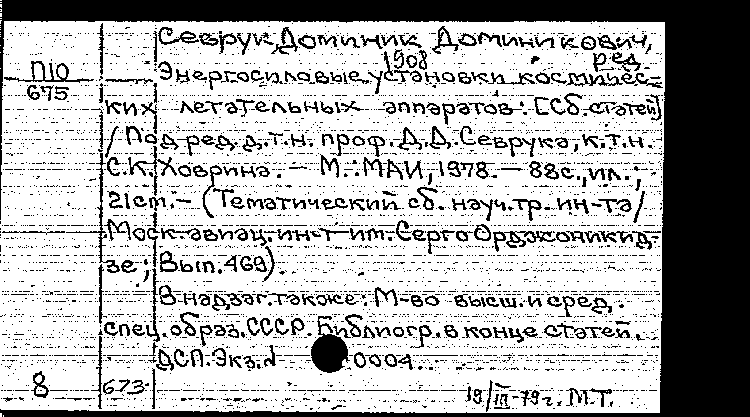 Севрук, Доминик Доминикович,
1908 ред.
П10
675
Энергосиловые установки космичес-
ких летательных аппаратов: [Сб. статей]
/ Под ред. д.т.н. проф. Д.Д. Севрука, к.т.н.
С.К. Ховрина. — М.: МАИ, 1978. — 88с., ил.;
21 cm. — (Тематический сб. науч. тр. ин-та /
Моск. авиац. ин-т им. Серго Орджоникид-
зе; Вып. 469).
В надзаг. также: М-во высш. и сред.
спец. образ. СССР. Библиогр. в конце статей.
ДСП. Экз. № 0004.
8 673 19/III-79г. М.Т.